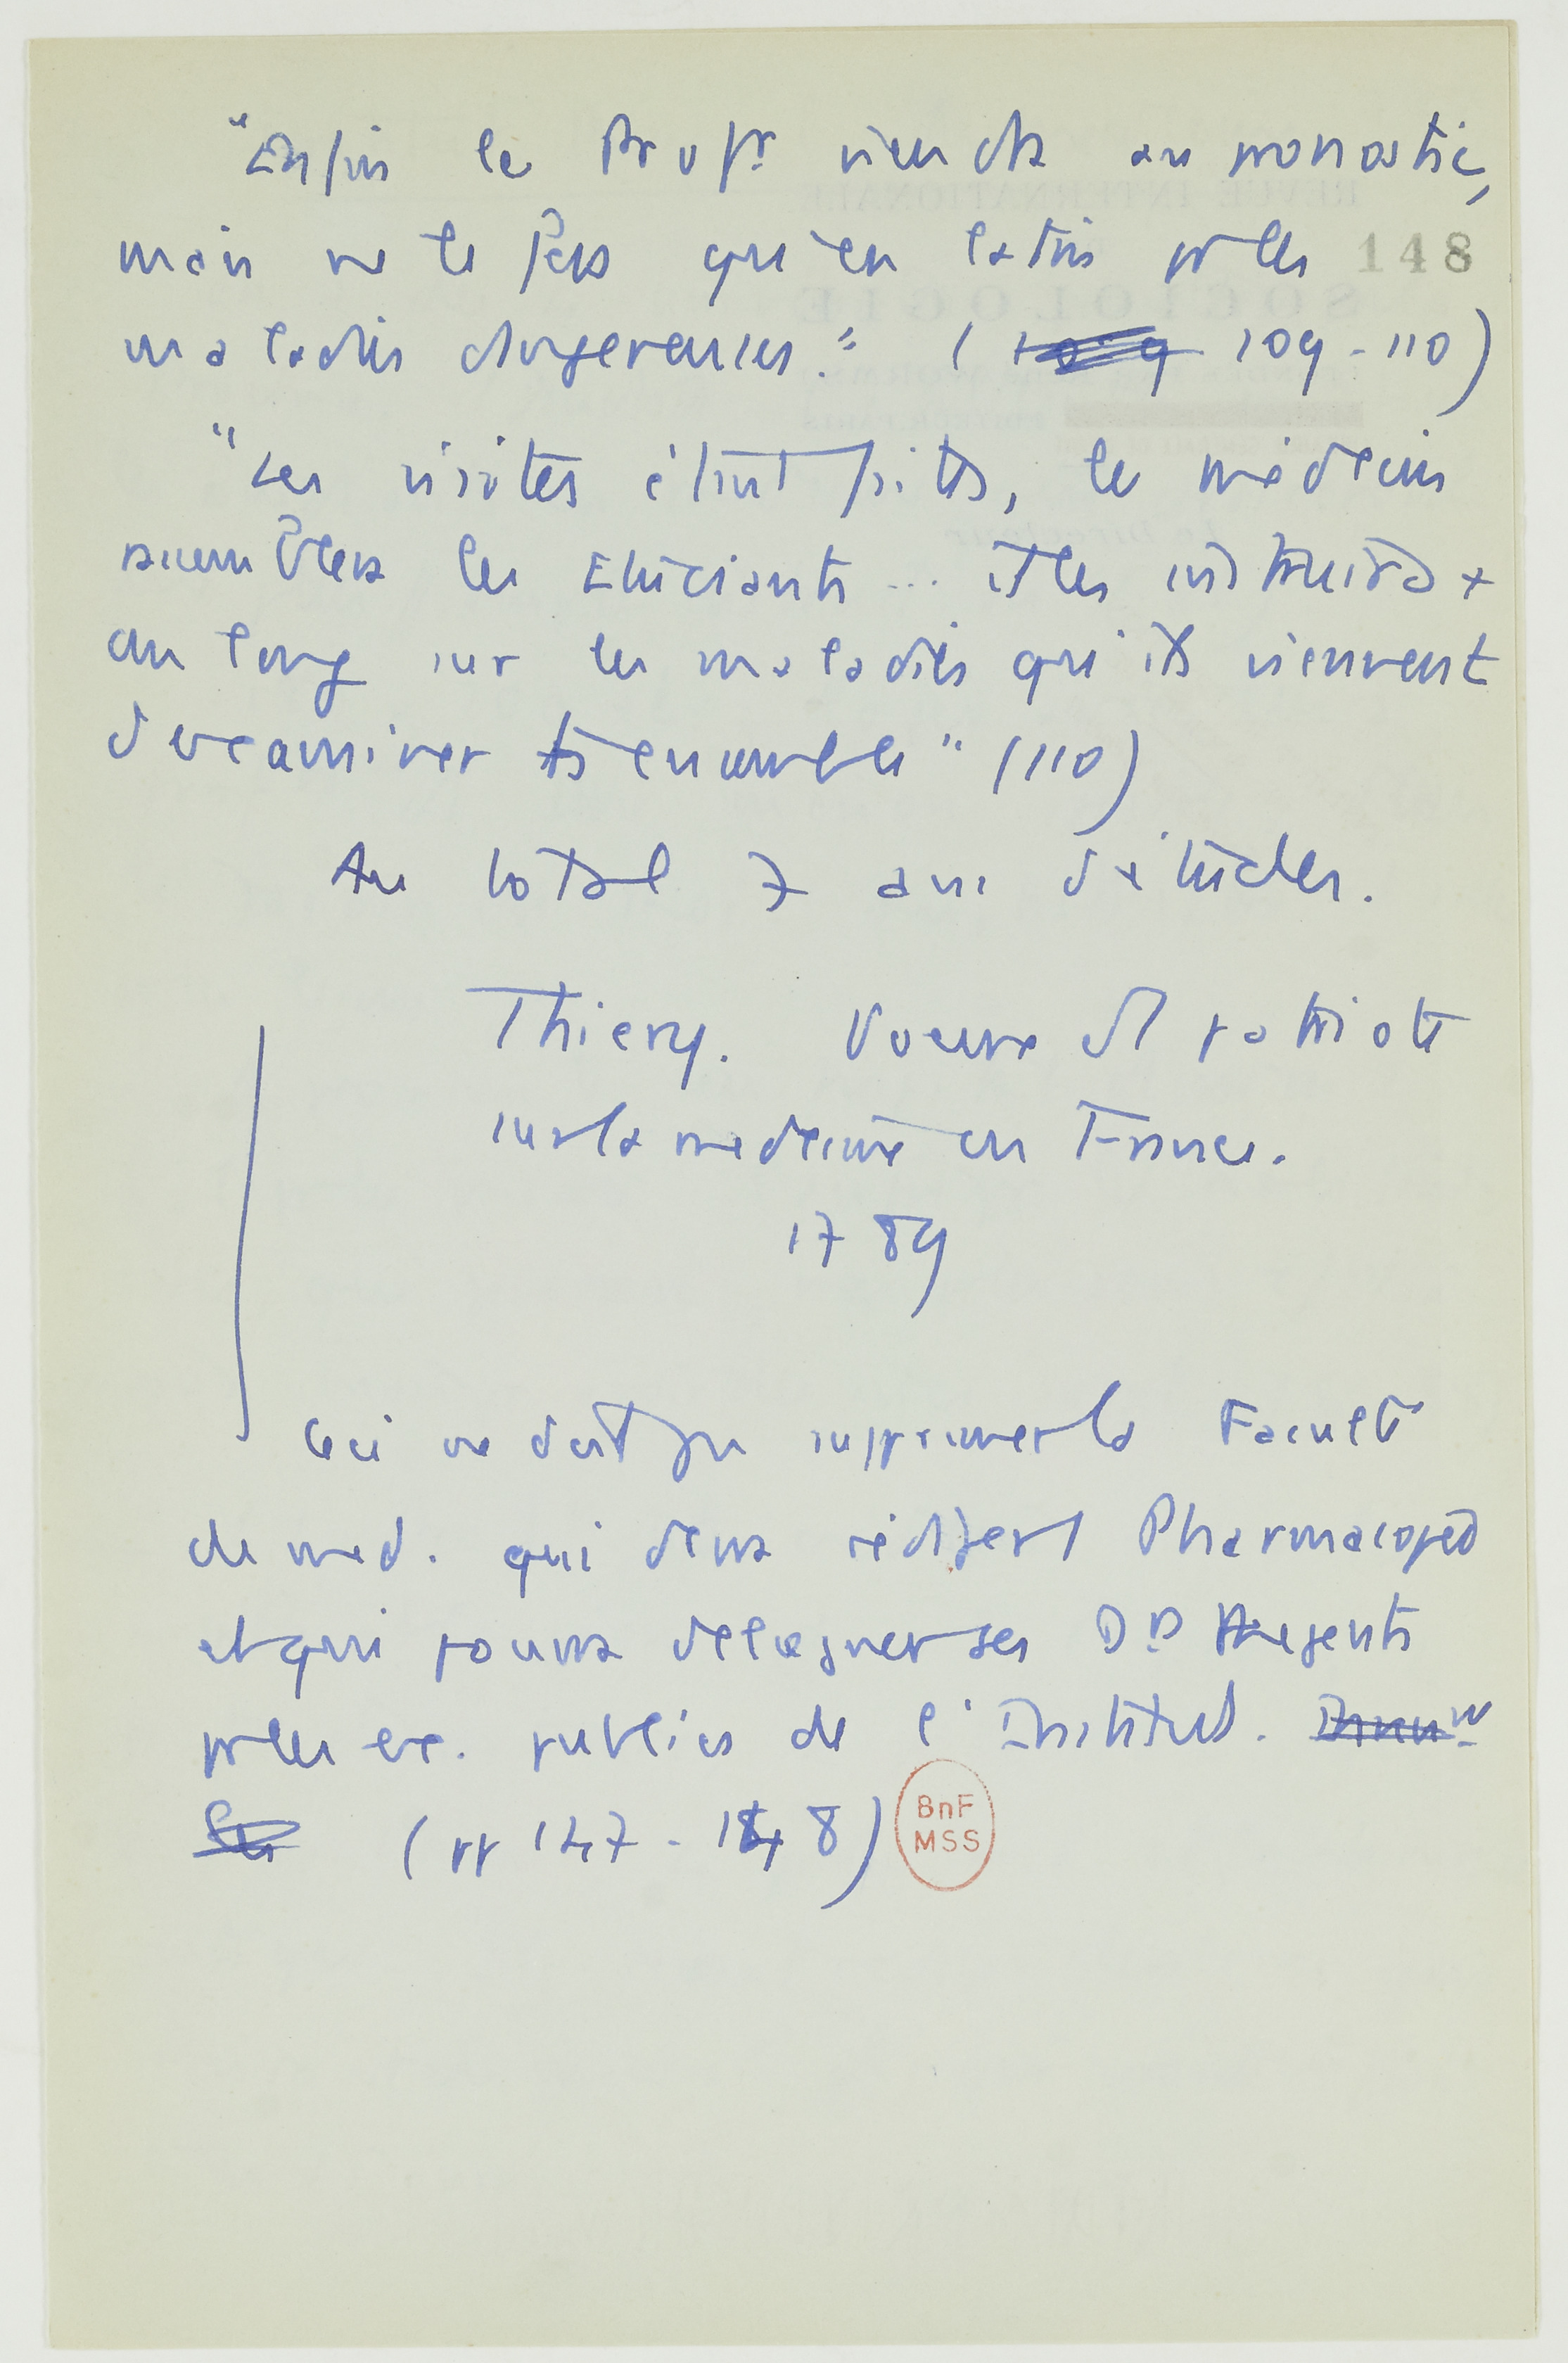 "Enfin le Profr viendra au pronostic,
mais ne le fera qu'en latin pr les 148
maladies dangereuses." ( 109-110)
"Les visites étant faites, le médecin
assemblera les Etudiants ... et les instruira
au long sur les maladies qu'ils viennent
d'examiner ensemble" (110)
Au total 7 ans d'études.
Thiery. Voeux d'1 patriote
sur la médecine en France.
1789
Ceci ne doit pas supprimer la Faculté
de med. qui devra rédiger 1 Pharmacopée
et qui pourra déléguer ses D.D Regents
pr les ex. publics de l'Institut.
(pp 147-148) BnF
MSS